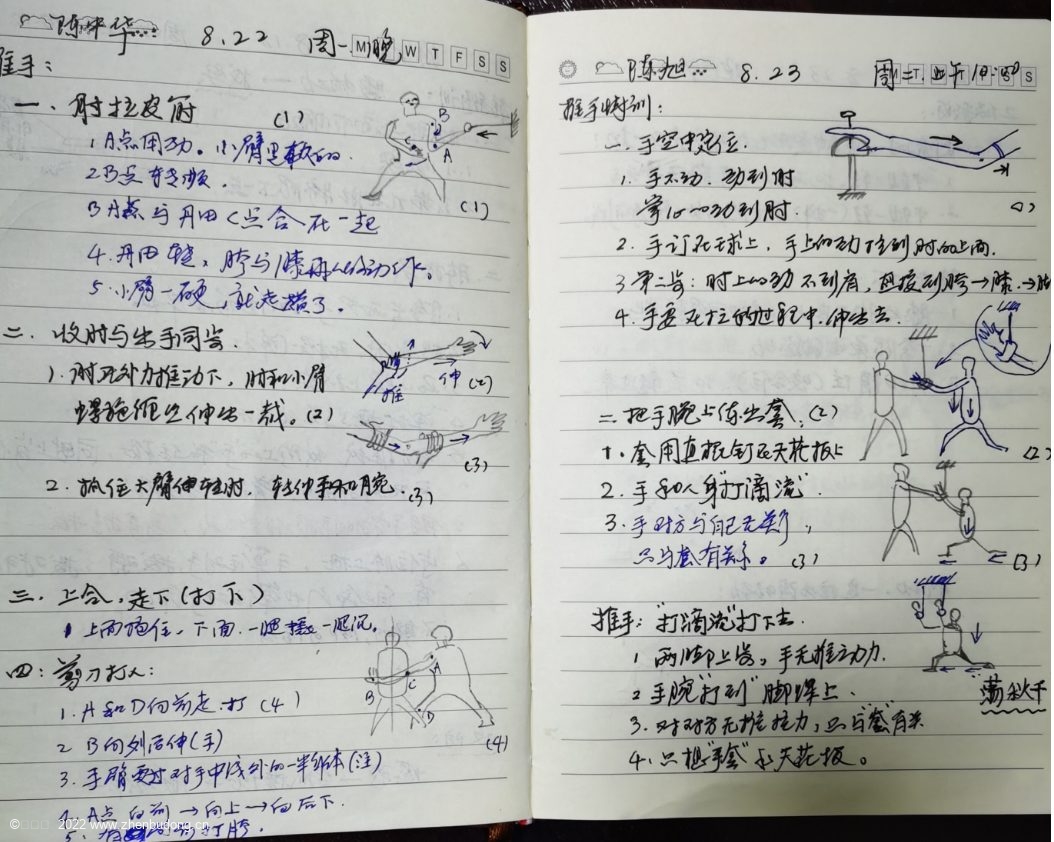 陈中华 8.22 周一晚 M T W T F S S
推手:
一、肘拉皮筋 (1)
1. A点用功。小臂是软的.
2 B点
3 A点与丹田C点合在一起
4. 丹田转, 胯与膝
5. 小臂一硬, 就走横了。
B
A
(1)
二. 收肘与出手同步.
1. 肘在外力推动下, 肘和小臂
螺旋 伸出一截。(2)
推
伸 (2)
(3)
2. 抓住大臂伸转时. 转伸手和腕. (3)
三. 上合, 走下 (打下)
1 上面拖住. 下面. 一腿 一腿沉.
四: 剪刀打人:
1. A和D向前走.打 (4)
2 B向列后伸(手)
3. 手臂要过对手中线外的一半身体(注)
4. A点向前→向上→向后下.
5. 打胯.
B
C
A
D
(4)
陈旭 8.23 周二.上午10:00 M T S S
推手特训:
一. 手空中定位.
1. 手不动. 动到肘
动到肘.
(1)
2. 手订在球上, 手上的动 到肘的上面.
3 第二步: 肘上的动不到肩, 直接到胯→膝.→
4. 手要在拉的过程中. 伸出去.
二. 把手腕上 套. (2)
1. 套用直棍钉在天花板上
2. 手和人身"打滴流".
3. 手对方与自己无关,
只与套有关系。(3)
(2)
(3)
推手: "打滴流"打下去.
1 两脚上步, 手无推动力.
2 手腕"打到"脚 上.
3. 对对方无推拉力, 只与"套"有关
4. 只想"手套" 天花板。
荡秋千
© 2022 www.zhenbudong.cn